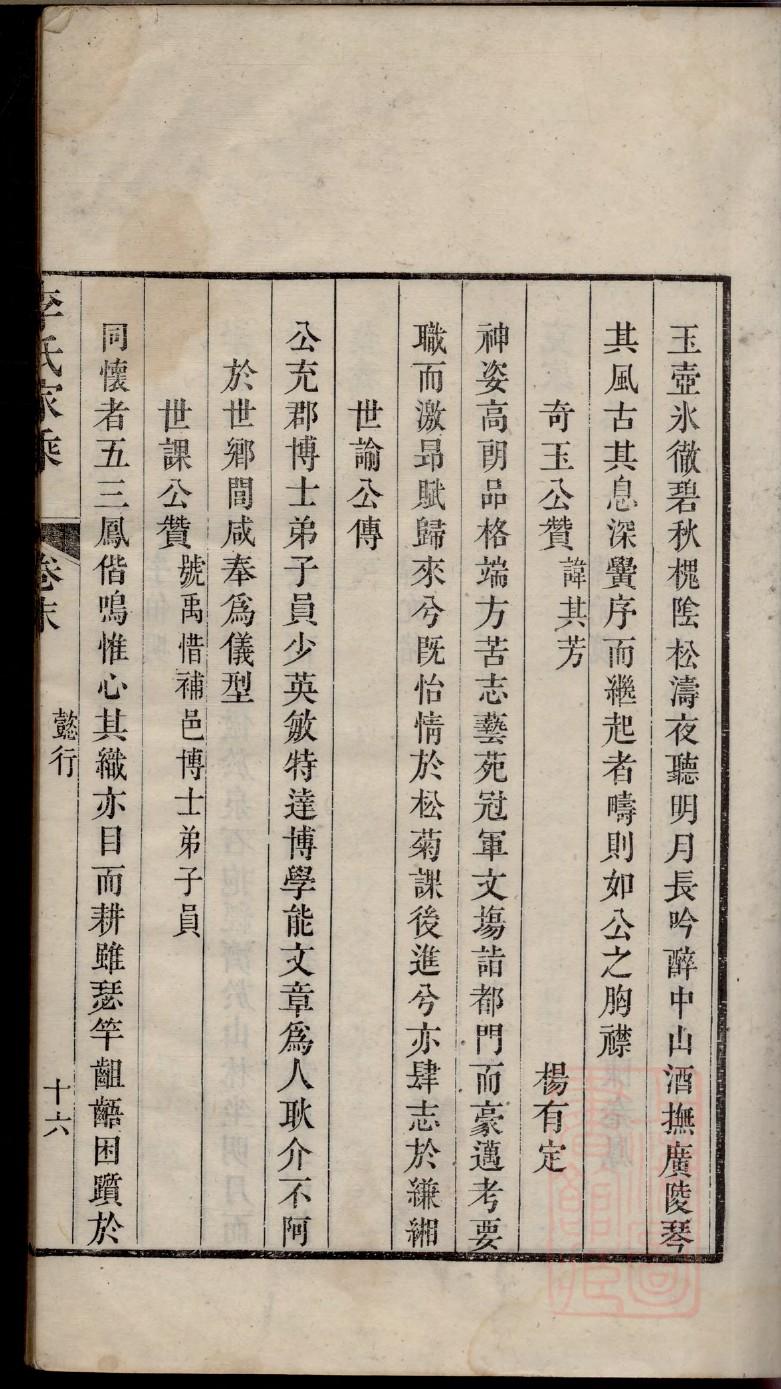 玉壺氷徹碧秋槐陰松濤夜聽明月長吟醉中山酒撫廣陵琴
其風古其息深黌序而繼起者疇則如公之胸襟
奇玉公贊 諱其芳 楊有定
神姿高朗品格端方苦志藝苑冠軍文塲詣都門而豪邁考要
職而激昻賦歸來兮旣怡情於松菊課後進兮亦肆志於縑緗
世論公傳
公充郡博士弟子員少英敏特達博學能文章爲人耿介不阿
於世鄉閭咸奉爲儀型
世課公贊 號禹惜補邑博士弟子員
同懷者五三鳳偕鳴惟心其織亦目而耕雖瑟竽齟齬困躓於
李氏家乘 卷末 懿行 十六